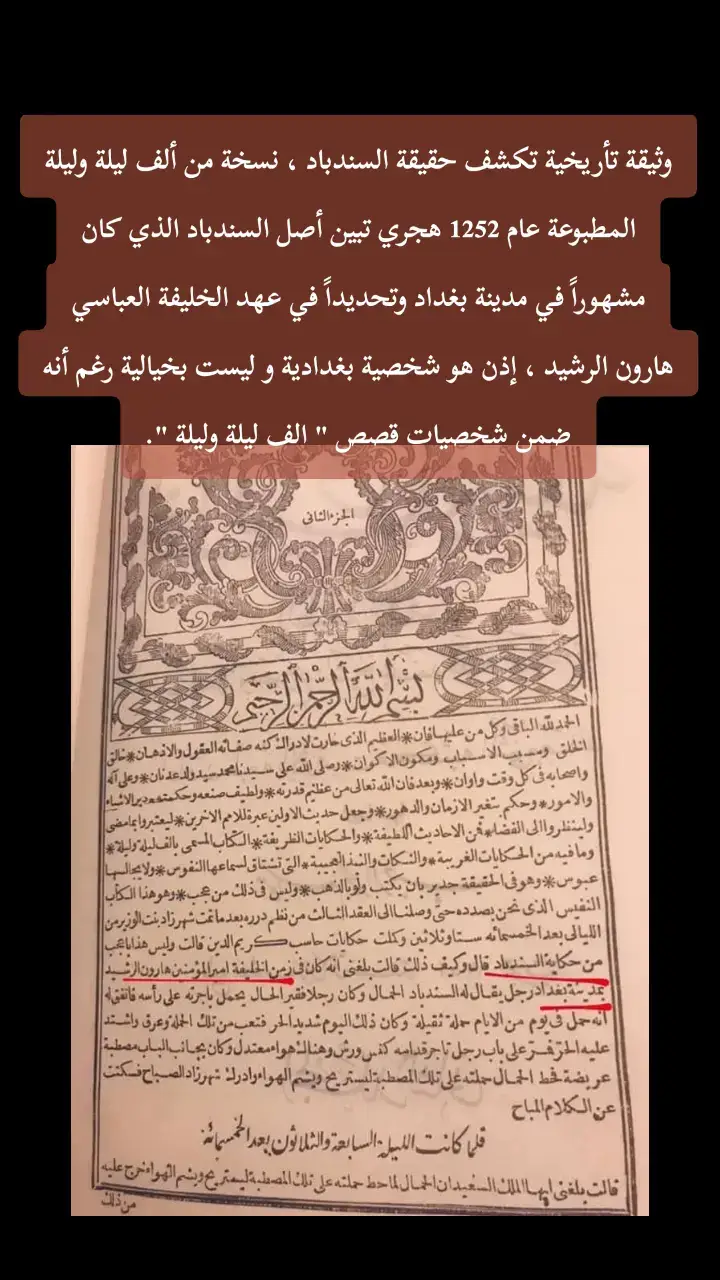 وثيقة تأريخية تكشف حقيقة السندباد ، نسخة من ألف ليلة وليلة
المطبوعة عام 1252 هجري تبين أصل السندباد الذي كان
مشهوراً في مدينة بغداد وتحديداً في عهد الخليفة العباسي
هارون الرشيد ، إذن هو شخصية بغدادية و ليست بخيالية رغم أنه
ضمن شخصيات قصص " الف ليلة وليلة ".
الجزء الثاني
بسم الله الرحمن الرحيم
الحمد لله الباقي وكل من عليها فان * العظيم الذي حارت لادراك كنه صفاته العقول والاذهان * خالق
الخلق ومسبب الاسباب ومكون الاكوان * وصلى الله على سيدنا محمد سيد ولد عدنان * وعلى آله
واصحابه في كل وقت واوان * وبعد فان الله تعالى من عظيم قدرته * ولطيف صنعه وحكمته دبر الاشياء
والامور * وحكم بتغير الازمان والدهور * وجعل حديث الاولين عبرة للامم الاخرين * ليعتبروا بما مضى
ولينظروا الى القضا * فمن الاحاديث اللطيفة * والحكايات الظريفة * الكتاب المسمى بالف ليلة وليلة *
وما فيه من الحكايات الغريبة * والنكات والنبذ العجيبة * التي تشتاق لسماعها النفوس * ولا يجالسها
عبوس * وهو في الحقيقة جدير بان يكتب ولو بالذهب * وليس في ذلك من عجب * وهو هذا الكتاب
النفيس الذي نحن بصدده حتى وصلنا الى العقد الثالث من نظم درره بعد ما تمت شهرزاد بنت الوزير من
الليالي بعد الخمسمائه ستا وثلاثين وكملت حكايات حاسب كريم الدين قالت وليس هذا باعجب
من حكاية السندباد قال وكيف ذلك قالت بلغني انه كان في زمن الخليفة امير المؤمنين هارون الرشيد
بمدينة بغداد رجل يقال له السندباد الحمال وكان رجلا فقير الحال يحمل باجرته على رأسه فاتفق له
انه حمل في يوم من الايام حملة ثقيلة وكان ذلك اليوم شديد الحر فتعب من تلك الحملة وعرق واشتد
عليه الحر فمر على باب رجل تاجر قدامه كنس ورش وهناك هواء معتدل وكان بجانب الباب مصطبة
عريضة فحط الحمال حملته على تلك المصطبة ليستريح ويشم الهواء وادرك شهرزاد الصباح فسكتت
عن الكلام المباح
فلما كانت الليلة السابعة والثلاثون بعد الخمسمائة
قالت بلغني ايها الملك السعيد ان الحمال لما حط حملته على تلك المصطبة ليستريح ويشم الهواء خرج عليه
من ذلك